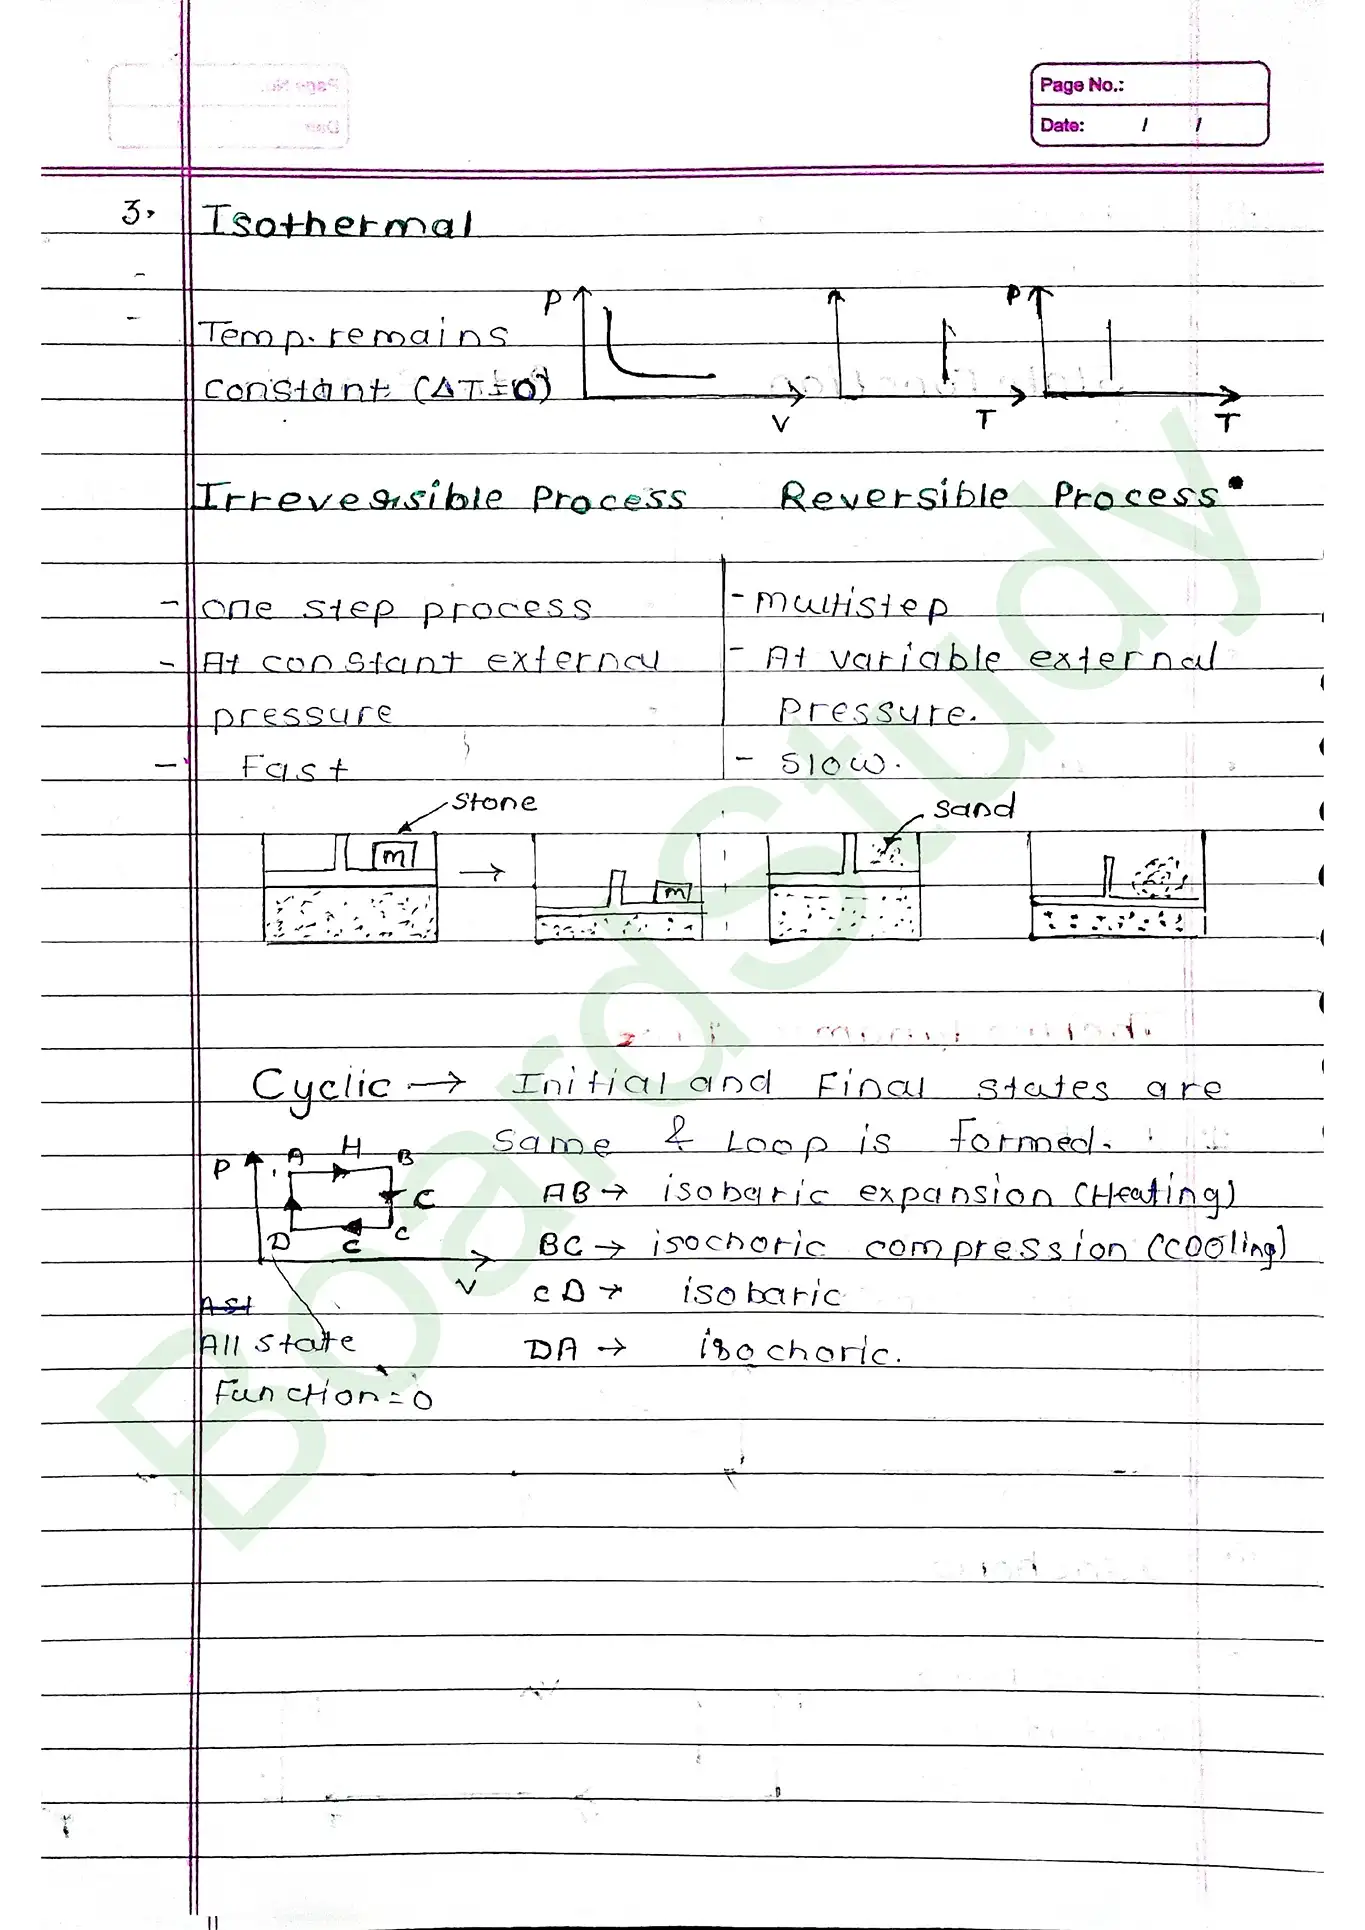 Page No.:
Date: / /
3. Isothermal
-
- Temp. remains
constant (ΔT=0)
P
V
T
P
T
Irreversible Process
Reversible Process
- one step process
- multistep
- At constant external
pressure
- At variable external
Pressure.
- Fast
- Slow.
stone
m
→
m
sand
Cyclic → Initial and Final states are
same & Loop is formed.
P
A
H
B
C
C
C
D
V
AB → isobaric expansion (Heating)
BC → isochoric compression (cooling)
CD → isobaric
DA → isochoric.
All state
Function = 0
BoardStudy